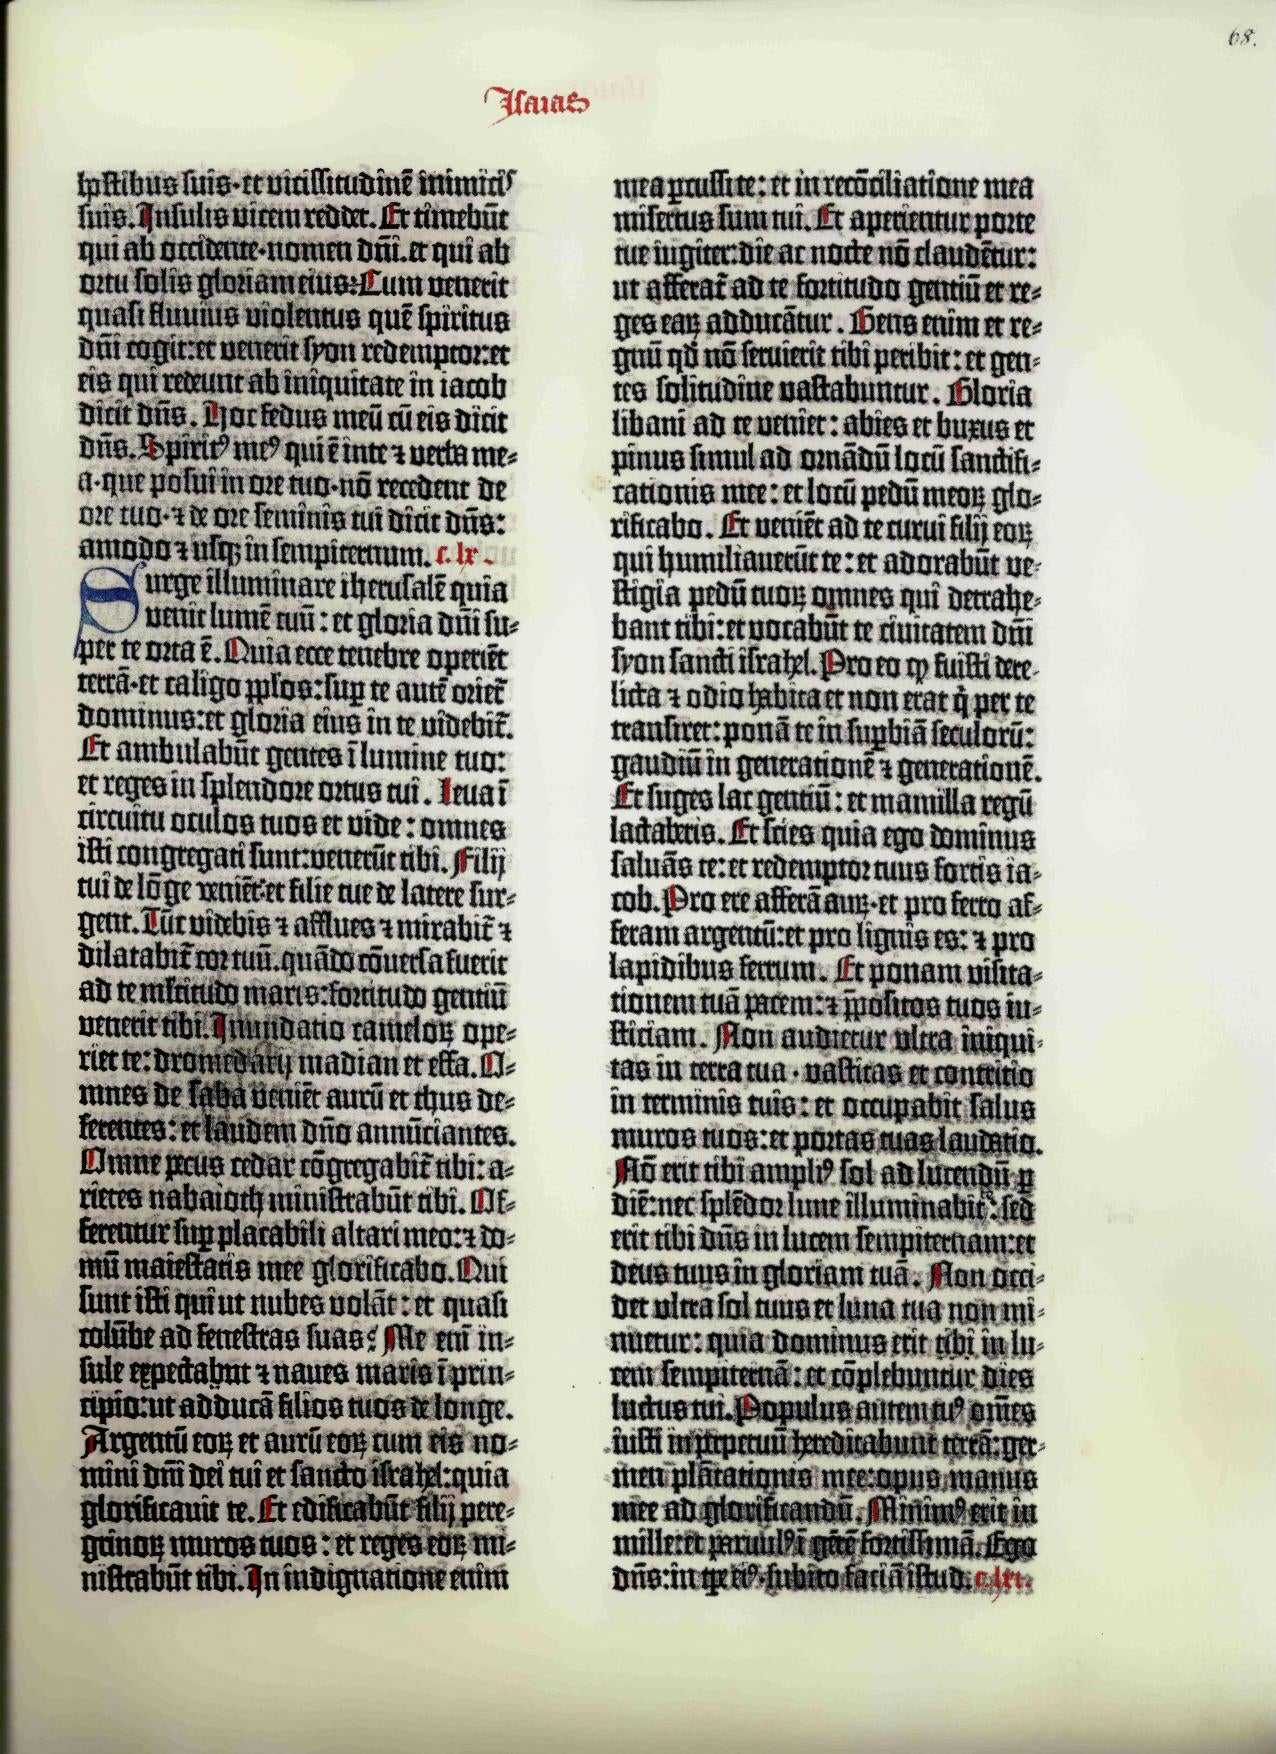 68.
Isaias
hostibus suis·et vicissitudinē inimicis
suis. Insulis vicem reddet. Et timebūt
qui ab occidente·nomen dn̄i. et qui ab
ortu solis gloriam eius: Cum venerit
quasi fluvius violentus quē spiritus
dn̄i cogit: et venerit syon redemptor: et
eis qui redeunt ab iniquitate in iacob
dicit dn̄s. Hoc fedus meū cū eis dicit
dn̄s. Spiritꝰ meꝰ qui ē in te ⁊ verba me-
a·que posui in ore tuo·nō recedent de
ore tuo·⁊ de ore seminis tui dicit dn̄s:
amodo ⁊ usqꝫ in sempiternum. c. lx.
Surge illuminare iherusalē quia
venit lumē tuū: et gloria dn̄i su-
per te orta ē. Quia ecce tenebre operiēt
terrā·et caligo pp̄los: suꝑ te autē oriet᷑
dominus: et gloria eius in te videbit᷑.
Et ambulabūt gentes ī lumine tuo:
et reges in splendore ortus tui. Leva ī
circuitu oculos tuos et vide: omnes
isti congregati sunt: venerūt tibi. Filij
tui de lōge veniēt: et filie tue de latere sur-
gent. Tūc videbis ⁊ afflues ⁊ mirabit᷑ ⁊
dilatabit᷑ cor tuū. quādo cōversa fuerit
ad te mltitudo maris: fortitudo gentiū
venerit tibi. Inundatio cameloꝝ ope-
riet te: dromedarij madian et effa. O-
mnes de saba veniēt aurū et thus de-
ferentes: et laudem dn̄o annūciantes.
Omne pecus cedar cōgregabit᷑ tibi: a-
rietes nabaioth ministrabūt tibi. Of-
ferentur suꝑ placabili altari meo: ⁊ do-
mū maiestatis mee glorificabo. Qui
sunt isti qui ut nubes volāt: et quasi
colūbe ad fenestras suas? Me eni in-
sule expectabunt ⁊ naves maris ī prin-
cipio: ut adducā filios tuos de longe.
Argentū eoꝝ et aurū eoꝝ cum eis no-
mini dn̄i dei tui et sancto israhel: quia
glorificavit te. Et edificabūt filij pere-
grinoꝝ muros tuos: et reges eoꝝ mi-
nistrabūt tibi. In indignatione enim
mea ꝑcussi te: et in recōciliatione mea
misertus sum tui. Et aperientur porte
tue iugiter: die ac nocte nō claudētur:
ut afferat᷑ ad te fortitudo gentiū et re-
ges eaꝝ adducātur. Gens enim et re-
gnū qd̄ nō servierit tibi peribit: et gen-
tes solitudine vastabuntur. Gloria
libani ad te veniet: abies et buxus et
pinus simul ad ornādū locū sanctifi-
cationis mee: et locū pedū meoꝝ glo-
rificabo. Et veniēt ad te curui filij eoꝝ
qui humiliaverūt te: et adorabūt ve-
stigia pedū tuoꝝ omnes qui detrahe-
bant tibi: et vocabūt te civitatem dn̄i
syon sancti israhel. Pro eo ꝙ fuisti dere-
licta ⁊ odio habita et non erat q̇ per te
transiret: ponā te in suꝑbiā seculorū:
gaudiū in generationē ⁊ generationē.
Et suges lac gentiū: et mamilla regū
lactaberis. Et scies quia ego dominus
salvās te: et redemptor tuus fortis ia-
cob. Pro ere afferā auꝝ·et pro ferro af-
feram argentū: et pro lignis es: ⁊ pro
lapidibus ferrum. Et ponam visita-
tionem tuā pacem: ⁊ p̄positos tuos iu-
sticiam. Non audietur ultra iniqui-
tas in terra tua·vastitas et contritio
in terminis tuis: et occupabit salus
muros tuos: et portas tuas laudatio.
Nō erit tibi ampliꝰ sol ad lucendū ꝑ
diē: nec splēdor lune illuminabit te: sed
erit tibi dn̄s in lucem sempiternam: et
deus tuus in gloriam tuā. Non occi-
det ultra sol tuus et luna tua non mi-
nuetur: quia dominus erit tibi in lu-
cem sempiternā: et cōplebuntur dies
luctus tui. Populus autem tuꝰ om̄es
iusti in ꝑpetuū hereditabunt terrā: ger-
men plātationis mee: opus manus
mee ad glorificandū. Minimꝰ erit in
mille: et parvulꝰ ī gētē fortissimā. Ego
dn̄s: in tꝑe eiꝰ·subito faciā istud. c. lxi.